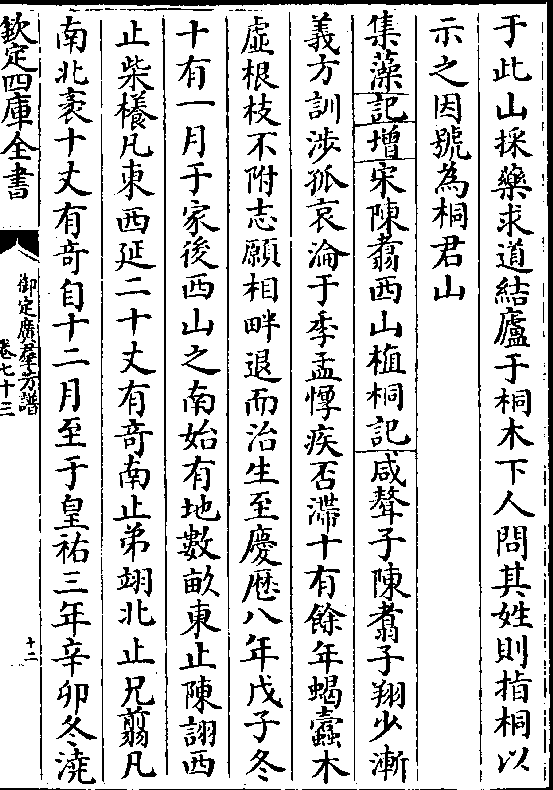 于此山採藥求道結廬于桐木下人問其姓則指桐以
示之因號為桐君山
集藻記增宋陳翥西山植桐記咸聱子陳翥子翔少漸
義方訓涉孤哀淪于季孟惸疾否滯十有餘年蝎蠹木
虛根枝不附志願相畔退而治生至慶厯八年戊子冬
十有一月于家後西山之南始有地數畝東止陳詡西
止柴櫶凡東西延二十丈有竒南止弟翊北止兄翦凡
南北袤十丈有竒自十二月至于皇祐三年辛卯冬澆
欽定四庫全書
御定廣羣芳譜
卷七十三
十二